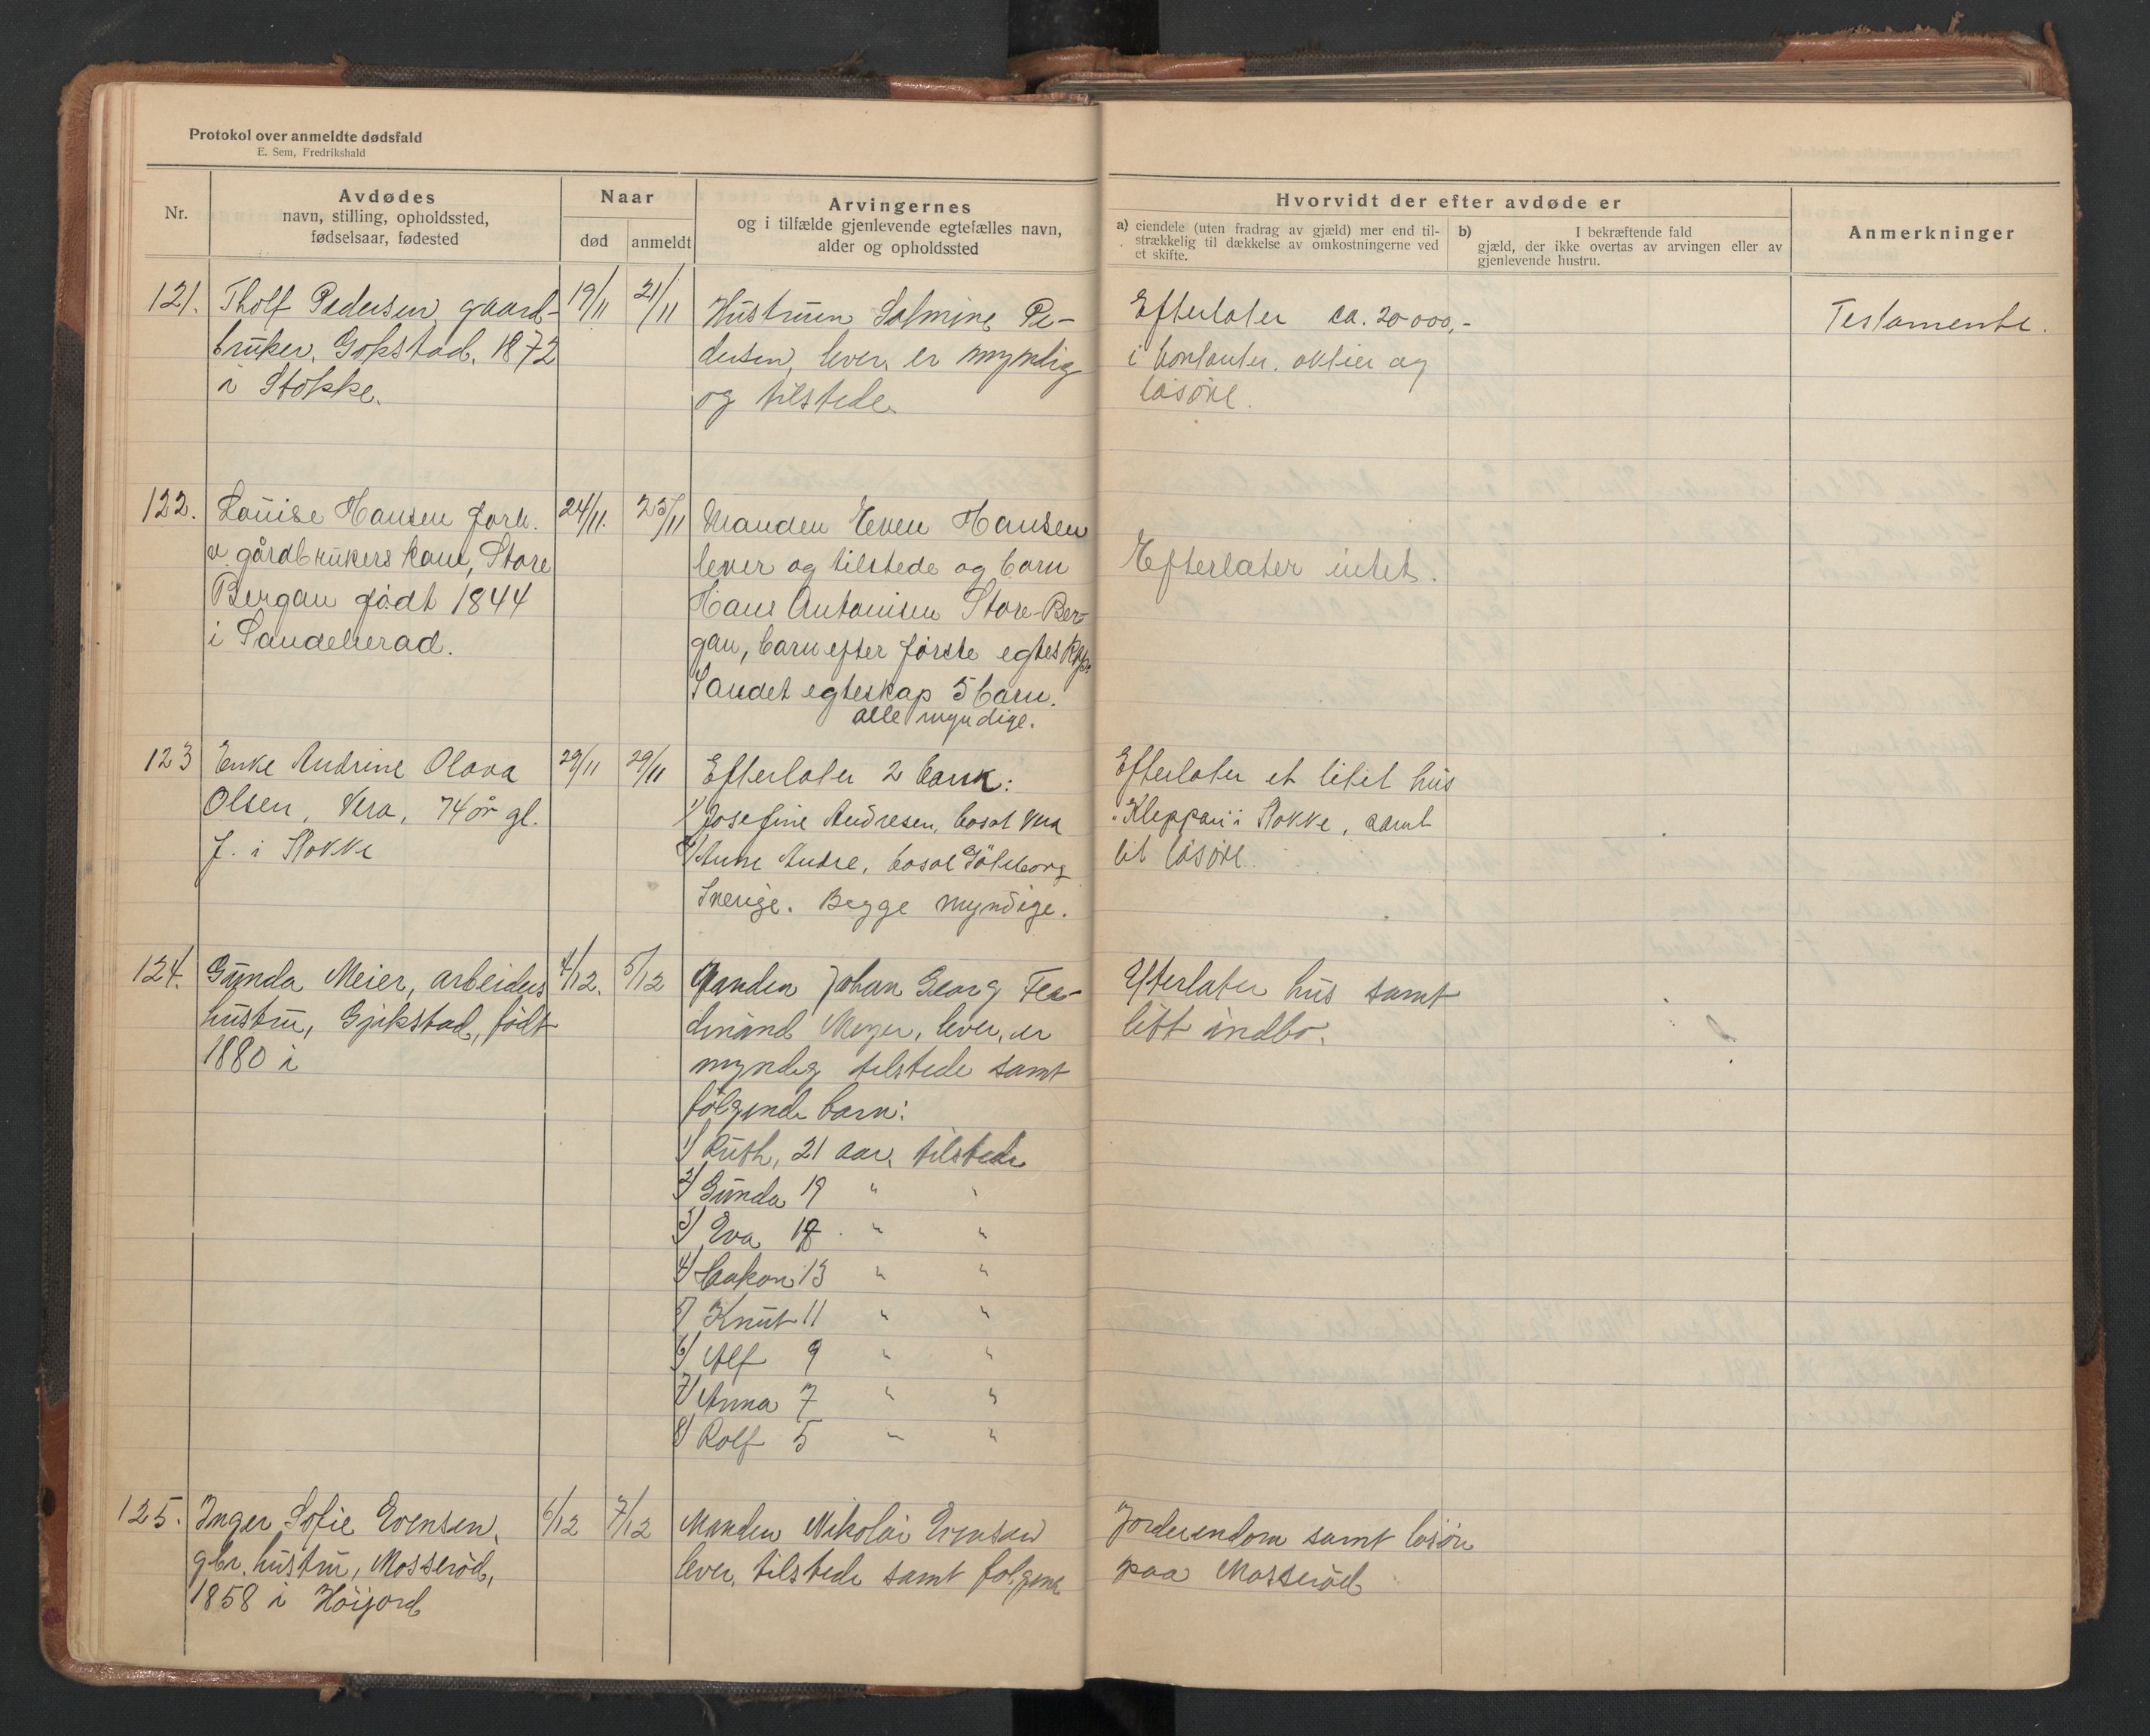 Protokol over anmeldte dødsfald
E. Sem, Fredrikshald
Nr.
Avdødes
navn, stilling, opholdssted,
fødselsaar, fødested
Naar
død
anmeldt
Arvingernes
og i tilfælde gjenlevende egtefælles navn,
alder og opholdssted
Hvorvidt der efter avdøde er
a) eiendele (uten fradrag av gjæld) mer end til-
strækkelig til dækkelse av omkostningerne ved
et skifte.
b) I bekræftende fald
gjæld, der ikke overtas av arvingen eller av
gjenlevende hustru.
Anmerkninger
121.
Tholf Pedersen, gaard-
bruker, Gokstad. 1872
i Stokke.
19/11
21/11
Hustruen Salmine Pe-
dersen, lever, er myndig
og tilstede.
Efterlater ca. 20000,-
i kontanter, aktier og
løsøre.
Testamente.
122.
Louise Hansen forh.
v. gårdbrukers kone, Store
Bergan født 1844
i Sandeherad.
24/11.
25/11
Manden Even Hansen
lever og tilstede og barn
Hans Antonisen Store-Ber-
gan, barn efter første egteskap.
I andet egteskap 5 barn.
alle myndige.
Efterlater intet.
123
Enke Andrine Olava
Olsen, Vera, 74 år gl.
f. i Stokke
29/11
29/11
Efterlater 2 barn:
1) Josefine Andresen, bosat Vera
2) Anne Andre, bosat Göteborg
Sverige. Begge myndige.
Efterlater et litet hus
"Kleppan" i Stokke, samt
lit løsøre.
124.
Gunda Meier, arbeiders
hustru, Gjekstad, født
1880 i
4/12.
5/12
Manden Johan Georg Fer-
dinand Meyer, lever, er
myndig tilstede samt
følgende barn:
1) Ruth, 21 aar, tilstede
2) Gunda 19 " "
3) Eva 18 " "
4) Haakon 13 " "
5) Knut 11 " "
6) Alf 9 " "
7) Anna 7 " "
8) Rolf 5 " "
Efterlater hus samt
litt indbo.
125.
Inger Sofie Evensen,
gbr. hustru, Mosserød,
1858 i Höijord
6/12
7/12
Manden Nikolai Evensen
lever, tilstede samt følgende
Jordeiendom samt løsøre
paa Mosserød